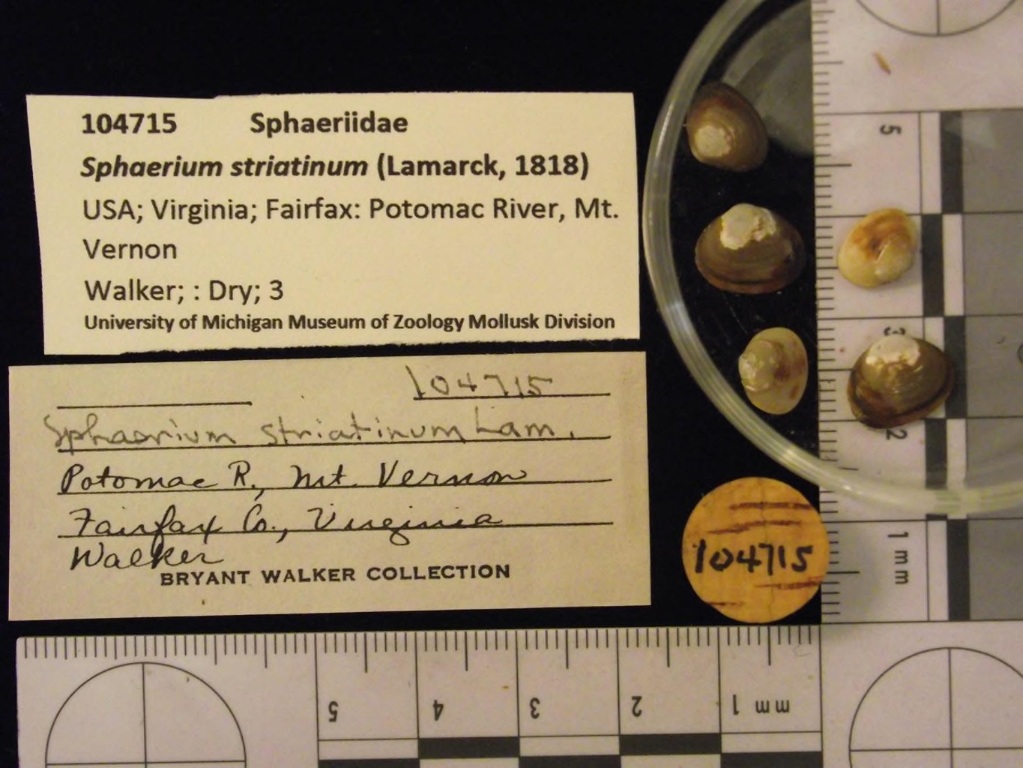 104715 Sphaeriidae
Sphaerium striatinum (Lamarck, 1818)
USA; Virginia; Fairfax: Potomac River, Mt.
Vernon
Walker; : Dry; 3
University of Michigan Museum of Zoology Mollusk Division
104715
Sphaerium striatinum Lam.
Potomac R., Mt. Vernon
Fairfax Co., Virginia
Walker
BRYANT WALKER COLLECTION
104715
5
3
2
1 mm
5 4 3 2 1 mm